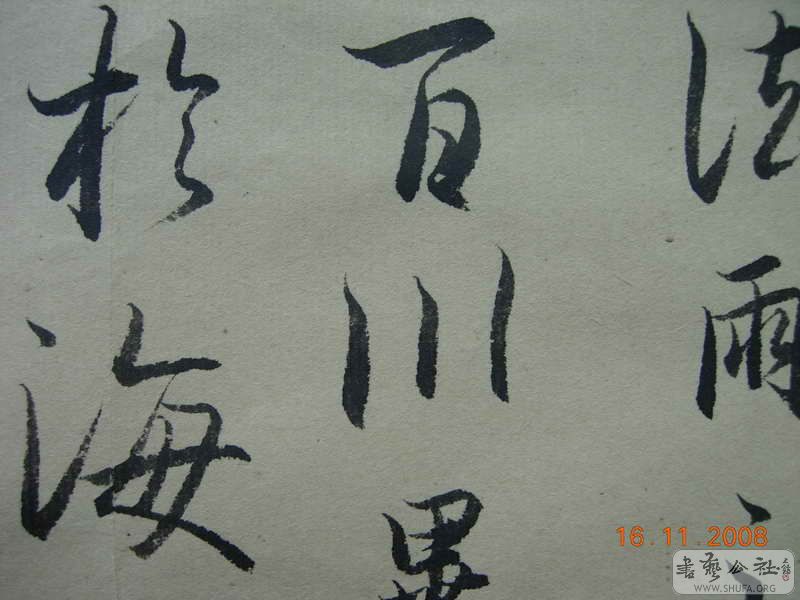 法雨
百川
於海
16.11.2008
書藝公社
WWW.SHUFA.ORG